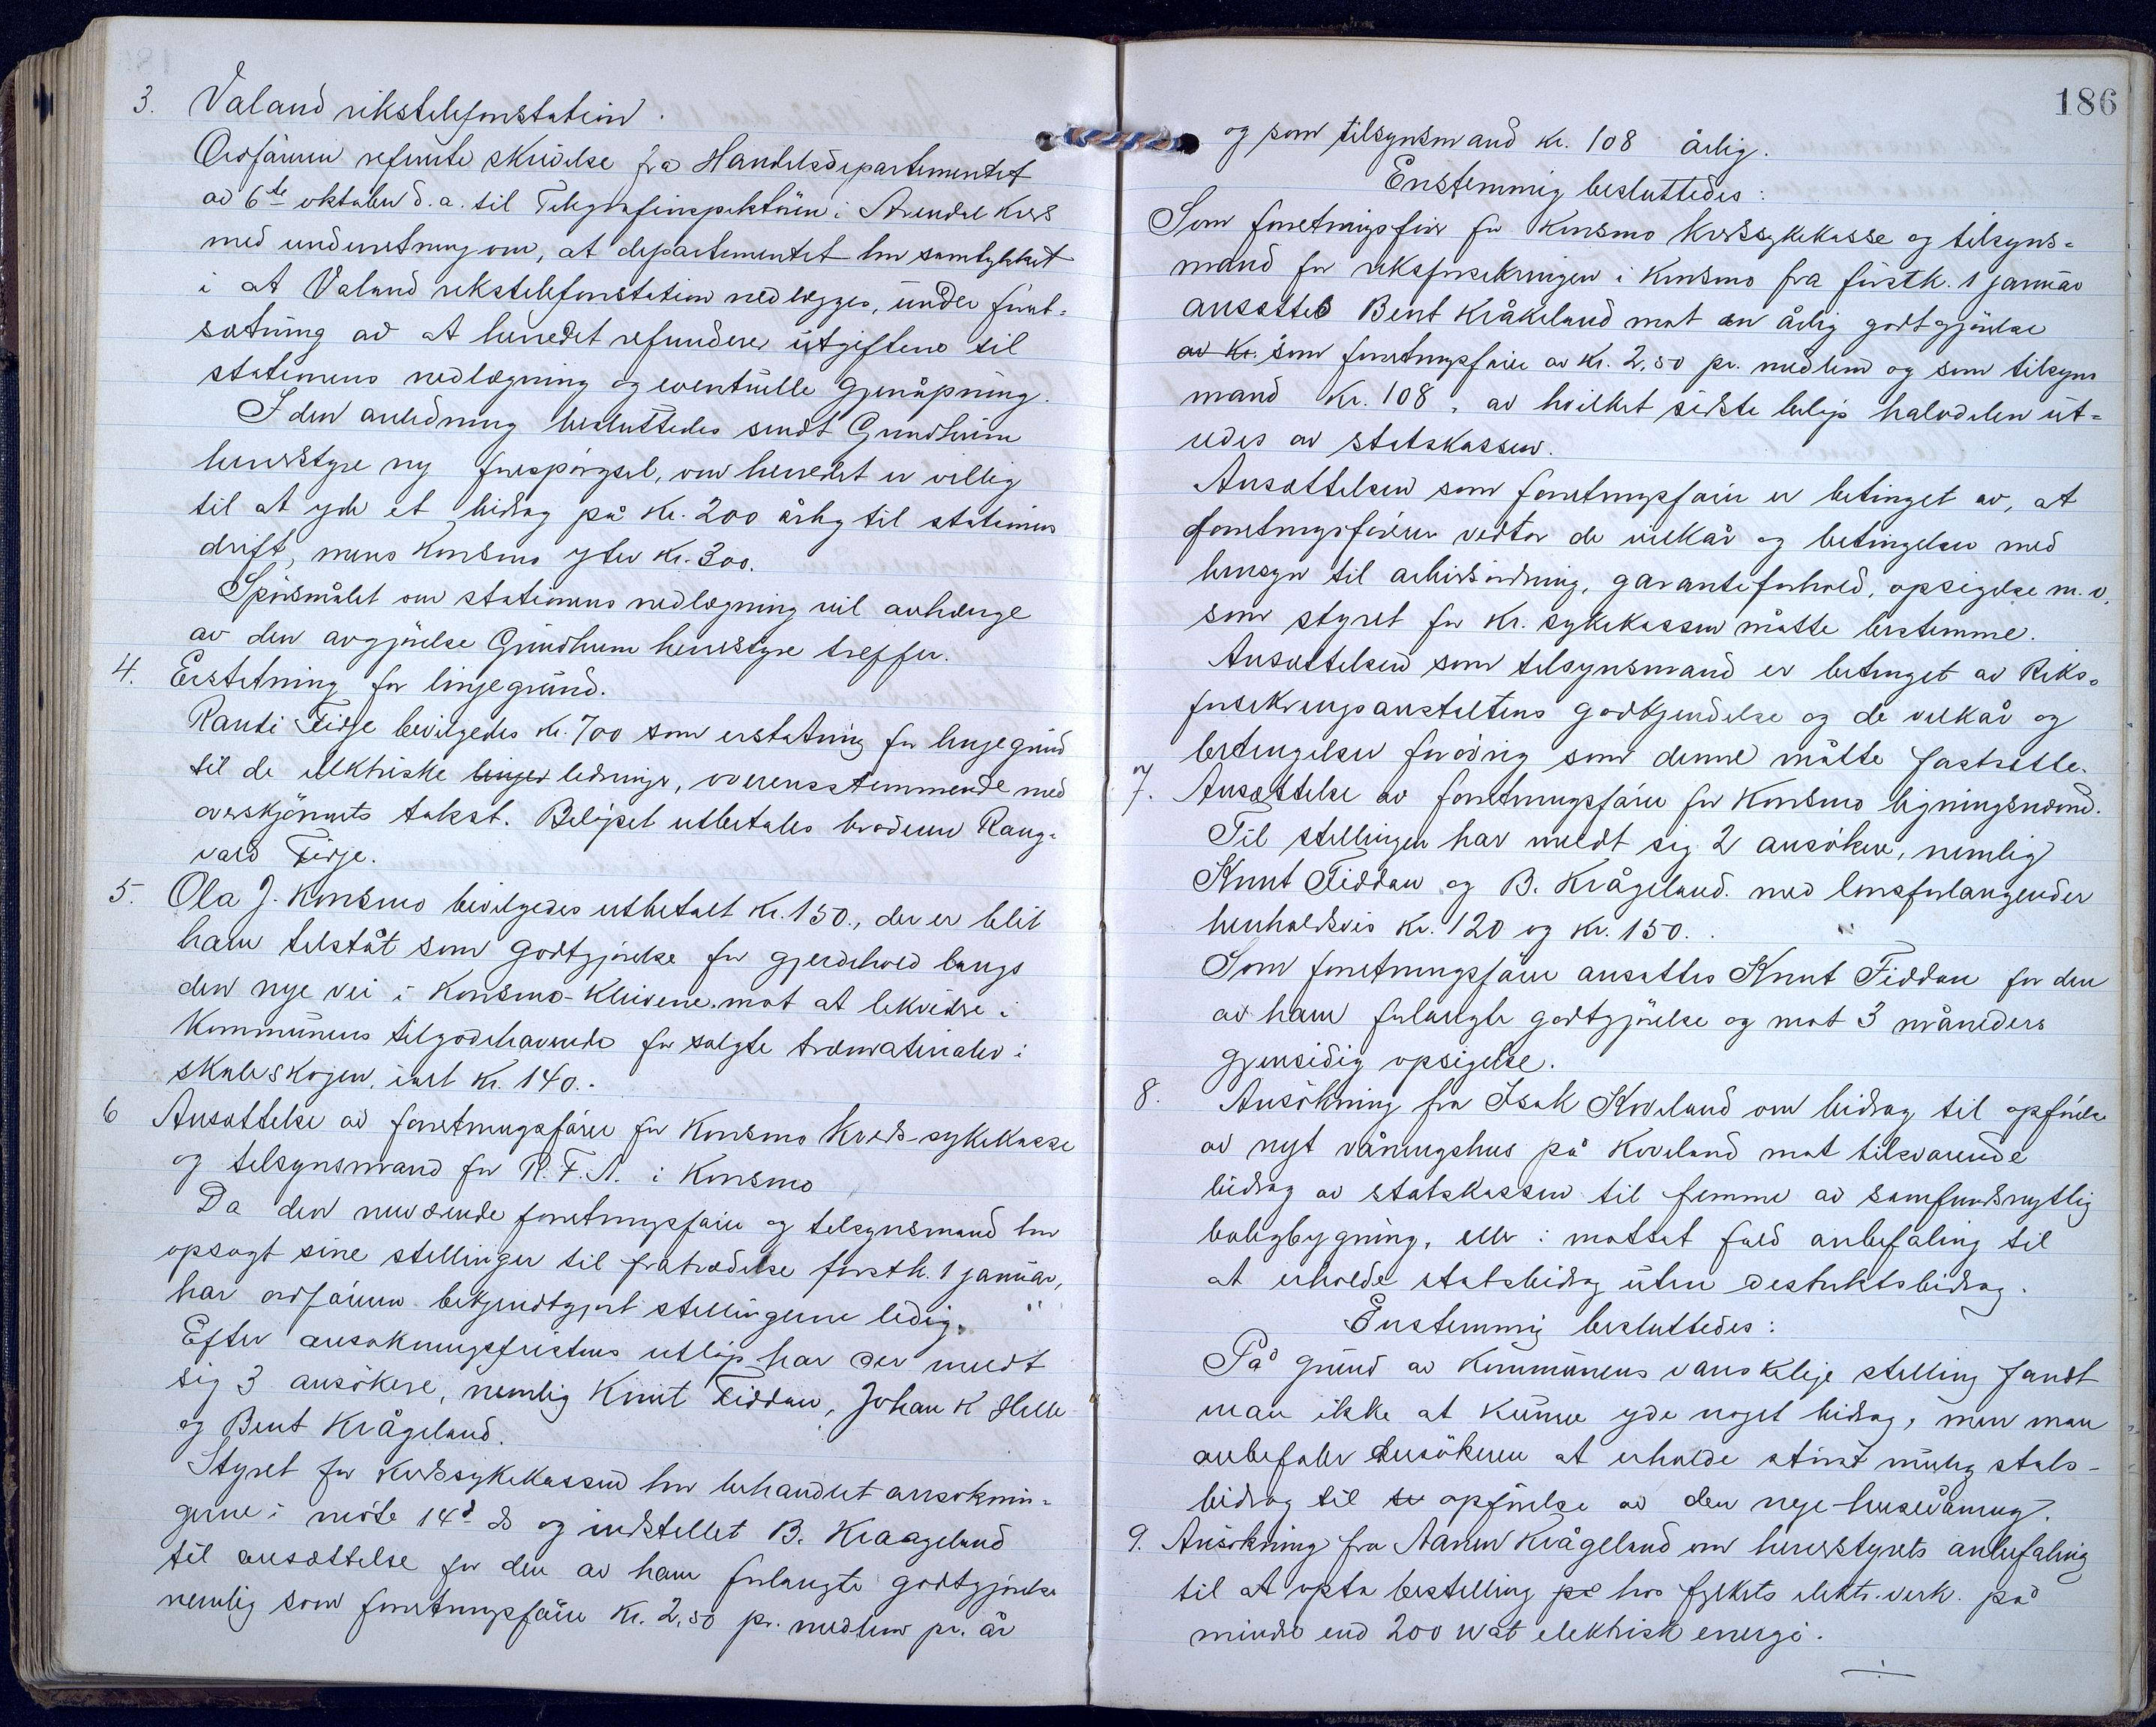 3. Valand rikstelefonstation.
Ordføreren refererte skrivelse fra Handelsdepartementet
av 6te oktober d.a. til Telegrafinspektøren i Arendal kreds
med underretning om, at departementet har samtykket
i at Valand rikstelefonstation nedlægges, under forut-
sætning av at herredet refunderer utgifterne til
stationens nedlægning og eventuelle gjenåpning.
I den anledning besluttedes sendt Grindheim
herredstyre ny forespørgsel, om herredet er villig
til at yde et bidrag på kr. 200 årlig til stationens
drift, mens Konsmo yter kr. 300.
Spørsmålet om stationens nedlægning vil avhænge
av den avgjørelse Grindheim herredstyre treffer.
4. Erstatning for linjegrund.
Randi Tirje bevilgedes kr. 700 som erstatning for linjegrund
til de elektriske linjer ledninger, overensstemmende med
overskjønnets takst. Beløpet utbetales broderen Rang-
vald Tirje.
5. Ola J. Konsmo bevilgedes utbetalt kr. 150., der er blit
ham tilståt som godtgjørelse for gjerdehold langs
den nye vei i Konsmo-Kleivene, mot at likvidere i
kommunens tilgodehavende for solgte træmaterialer i
skuleskogen, ialt kr. 140.-
6 Ansættelse av forretningsfører for Konsmo kreds-sykekasse
og tilsynsmand for R.F.A. i Konsmo
Da den nuværende forretningsfører og tilsynsmand har
opsagt sine stillinger til fratrædelse førstk. 1 januar,
har ordføreren bekjendtgjort stillingerne ledig.
Efter ansøkningsfristens utløp har der meldt
sig 3 ansøkere, nemlig Knut Fiddan, Johan K Helle
og Bent Krågeland.
Styret for kredssykekassen har behandlet ansøknin-
gerne i møte 14d ds og indstillet B. Kraageland
til ansættelse for den av ham forlangte godtgjørelse
nemlig som forretningsfører kr. 2,50 pr. medlem pr. år
186
og som tilsynsmand kr. 108 årlig.
Enstemmig besluttedes:
Som forretningsfører for Konsmo kredssykekasse og tilsyns-
mand for riksforsikringen i Konsmo fra førstk. 1 januar
ansættes Bent Kråkeland mot en årlig godtgjørelse
av kr. som forretningsfører av kr. 2,50 pr. medlem og som tilsyns
mand kr. 108, av hvilket sidste beløp halvdelen ut-
redes av statskassen.
Ansættelsen som forretningsfører er betinget av, at
forretningsføreren vedtar de vilkår og betingelser med
hensyn til arbeidsordning, garantiforhold, opsigelse m.v.
som styret for kr. sykekassen måtte bestemme.
Ansættelsen som tilsynsmand er betinget av Riks-
forsikringsanstaltens godkjendelse og de vilkår og
betingelser forøvrig som denne måtte fastsætte.
7. Ansættelse av forretningsfører for Konsmo ligningsnævnd.
Til stillingen har meldt sig 2 ansøkere, nemlig
Knut Fiddan og B. Krågeland. med lønsforlangender
henholdsvis kr. 120 og kr. 150.
Som forretningsfører ansattes Knut Fiddan for den
av ham forlangte godtgjørelse og mot 3 måneders
gjensidig opsigelse.
8. Ansøkning fra Isak Koveland om bidrag til opførelse
av nyt våningshus på Koveland mot tilsvarende
bidrag av statskassen til fremme av samfundsnyttig
boligbygning, eller i motsat fald anbefaling til
at erholde statsbidrag uten distriktsbidrag.
Enstemmig besluttedes:
På grund av kommunens vanskelige stilling fandt
man ikke at kunne yde noget bidrag, men man
anbefaler ansøkeren at erholde størst mulig stats-
bidrag til se opførelse av den nye husevåning.
9. Ansøkning fra Aanen Krågeland om herredstyrets anbefaling
til at opta bestilling på hos fylkets elektr.verk på
mindre end 200 wat elektrisk energi.